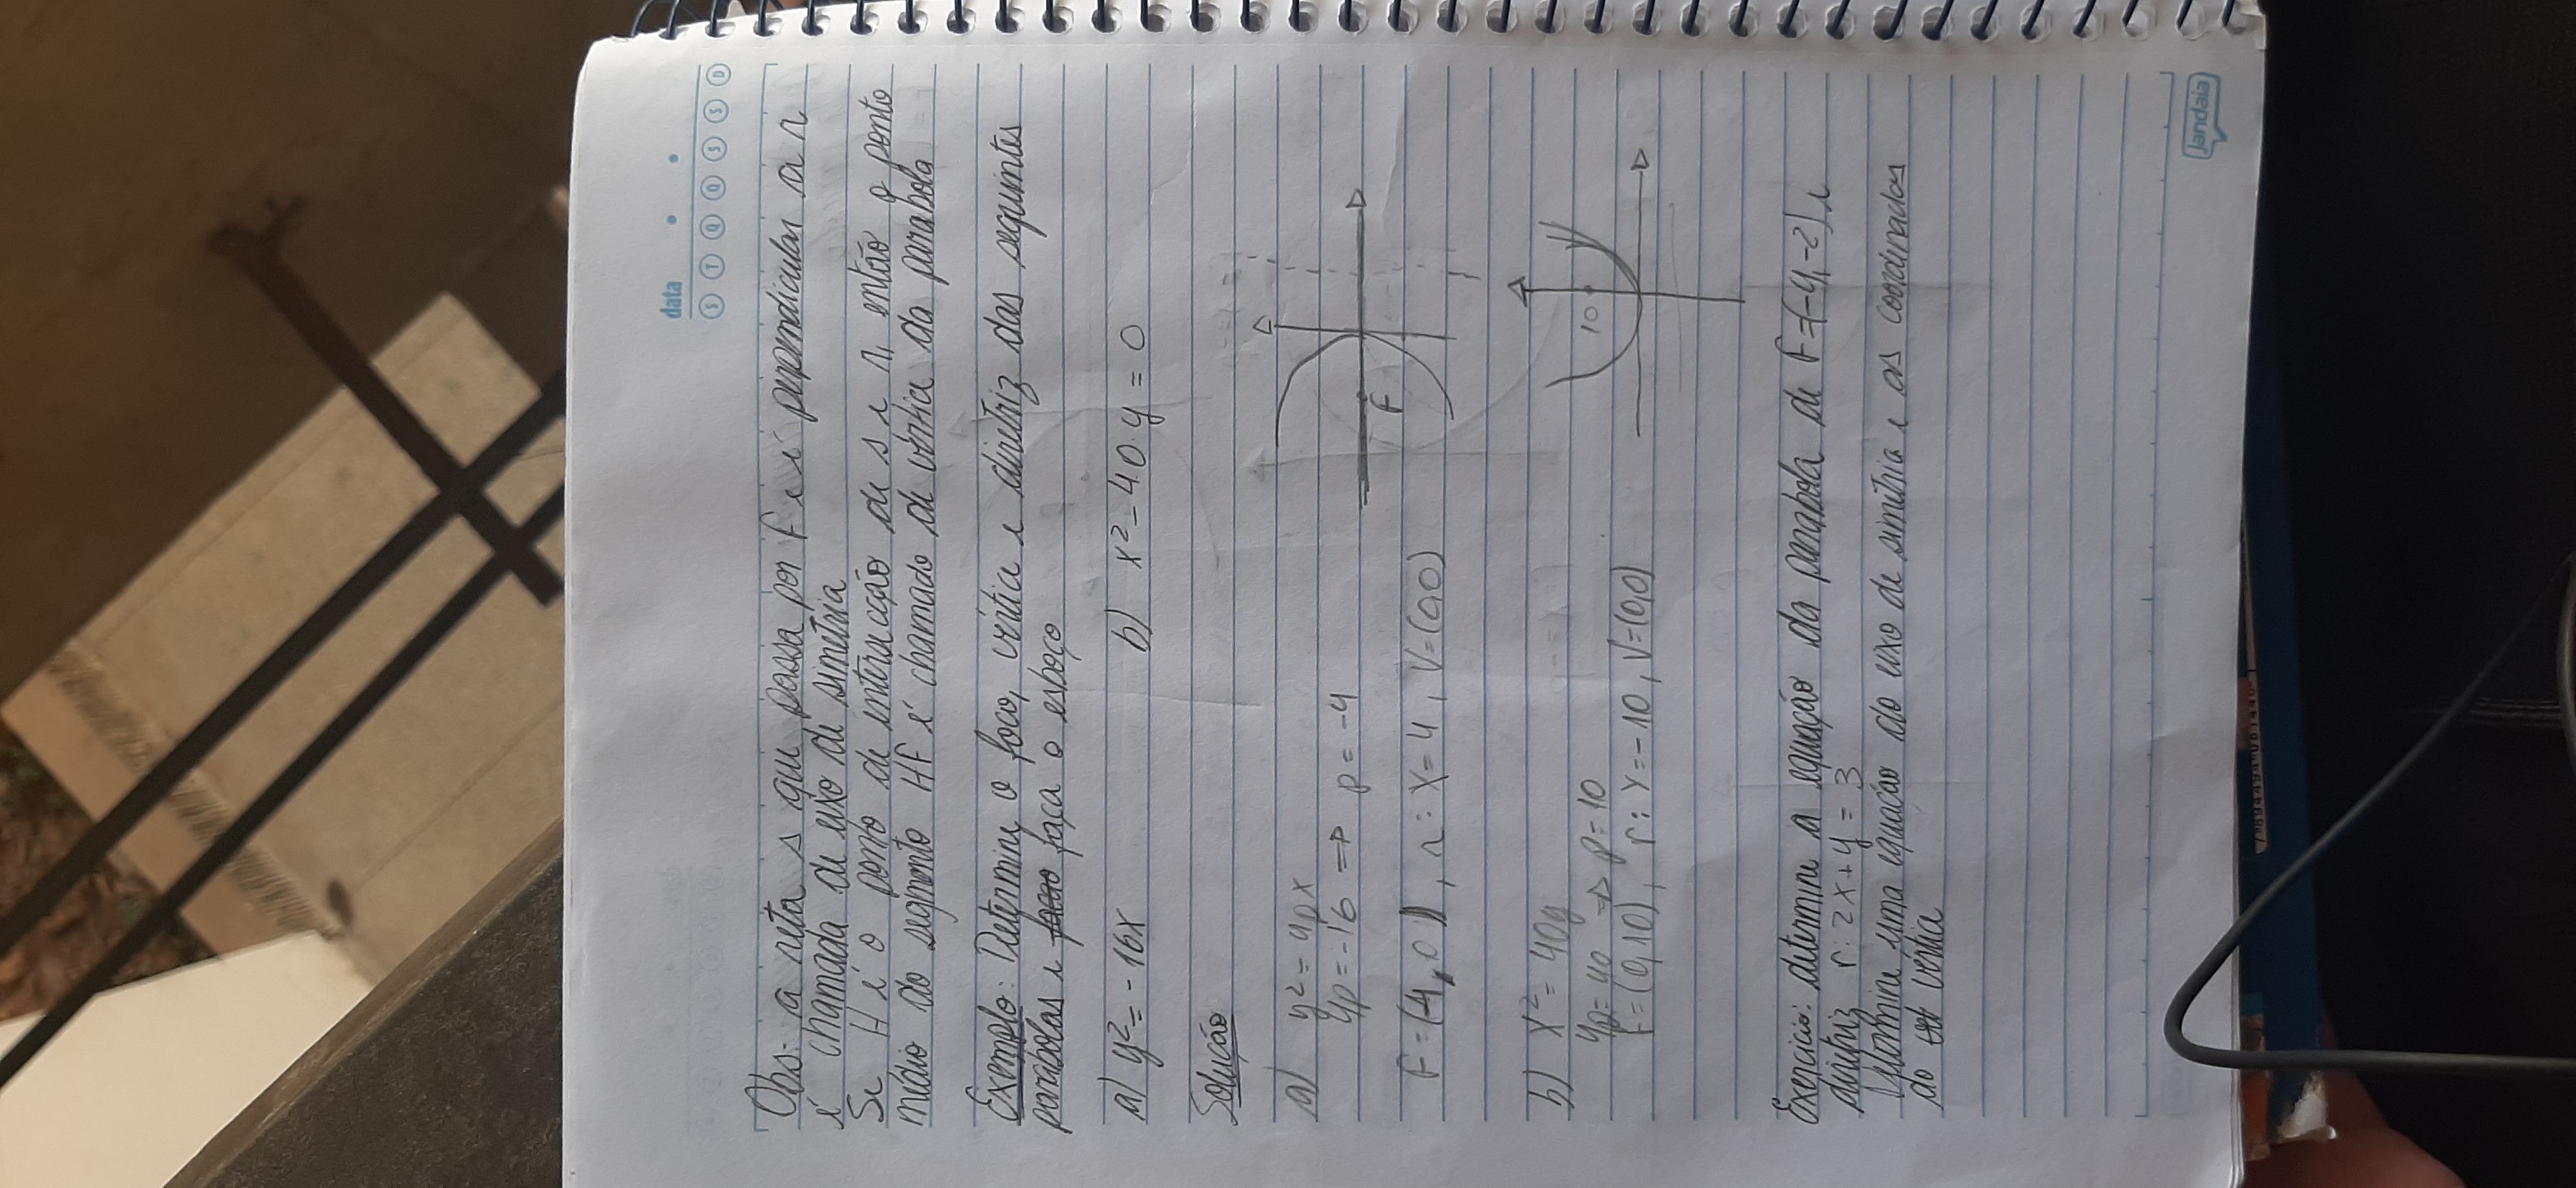 data
S T Q Q S S D
Obs: a reta s que passa por F e é perpendicular a r
é chamada de eixo de simetria
Se H é o ponto de intersecção de s e r, então o ponto
médio do segmento HF é chamado de vértice da parabola
Exemplo: Determine o foco, vértice e diretriz das seguintes
parábolas e faça o esboço
a) y² = -16x b) x² - 40·y = 0
Solução
a) y² = 4px
4p = -16 ⇒ p = -4
F = (-4, 0), r: x = 4, V = (0,0)
F
b) x² = 40y
4p = 40 ⇒ p = 10
F = (0,10), r: y = -10, V = (0,0)
10
Exercicio: determine a equação da parabola de F = (-4,-2) e
diretriz r: 2x + y = 3
Determine uma equação do eixo de simetria e as coordenadas
do vértice
jandaia